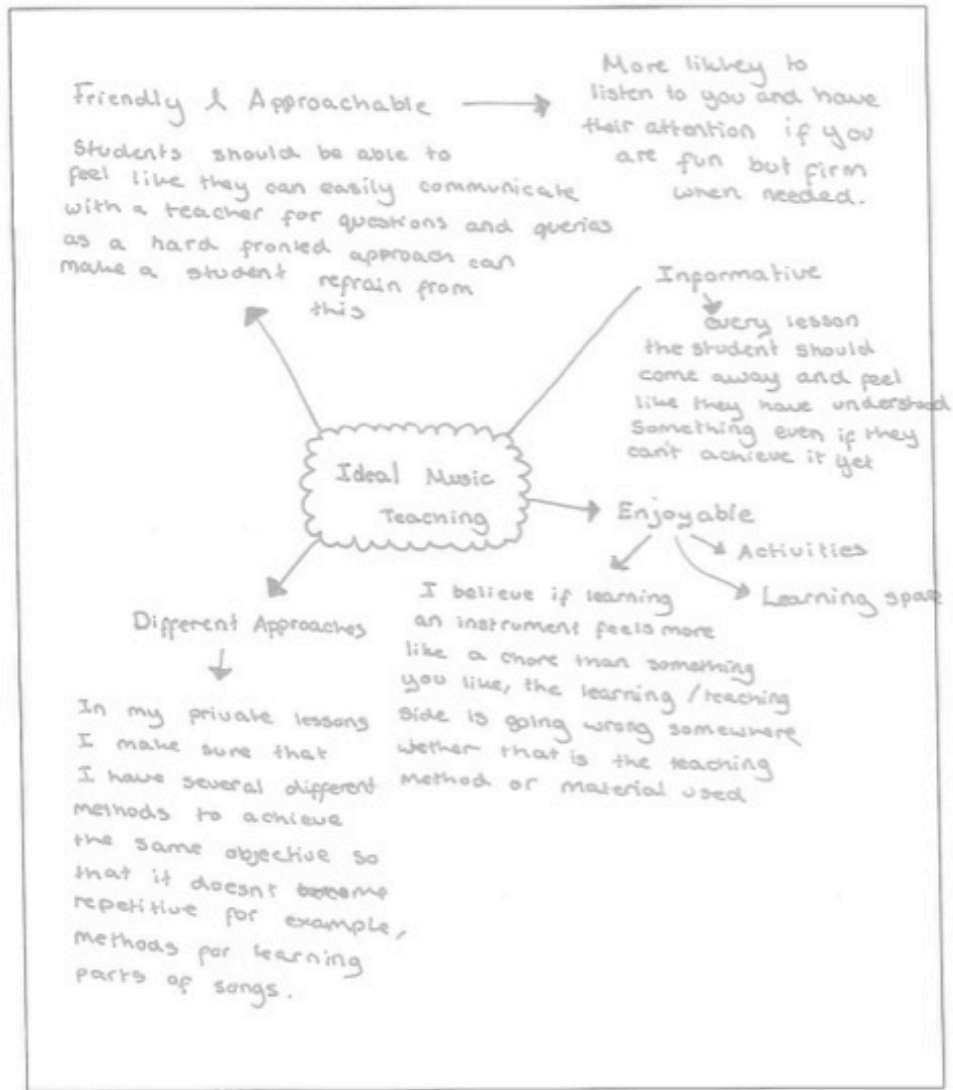 Friendly & Approachable
Students should be able to
feel like they can easily communicate
with a teacher for questions and queries
as a hard fronted approach can
make a student refrain from
this
More likley to
listen to you and have
their attention if you
are fun but firm
when needed.
Informative
every lesson
the student should
come away and feel
like they have understood
something even if they
can't achieve it yet
Ideal Music
Teaching
Enjoyable
Activities
Learning space
I believe if learning
an instrument feels more
like a chore than something
you like, the learning / teaching
side is going wrong somewhere
wether that is the teaching
method or material used
Different Approaches
In my private lessons
I make sure that
I have several different
methods to achieve
the same objective so
that it doesnt become
repetitive for example,
methods for learning
parts of songs.